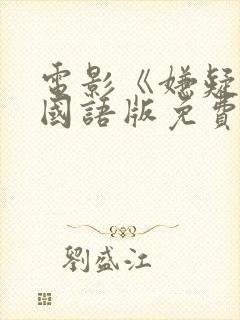 電影《嫌疑
國語版免費
劉盛江